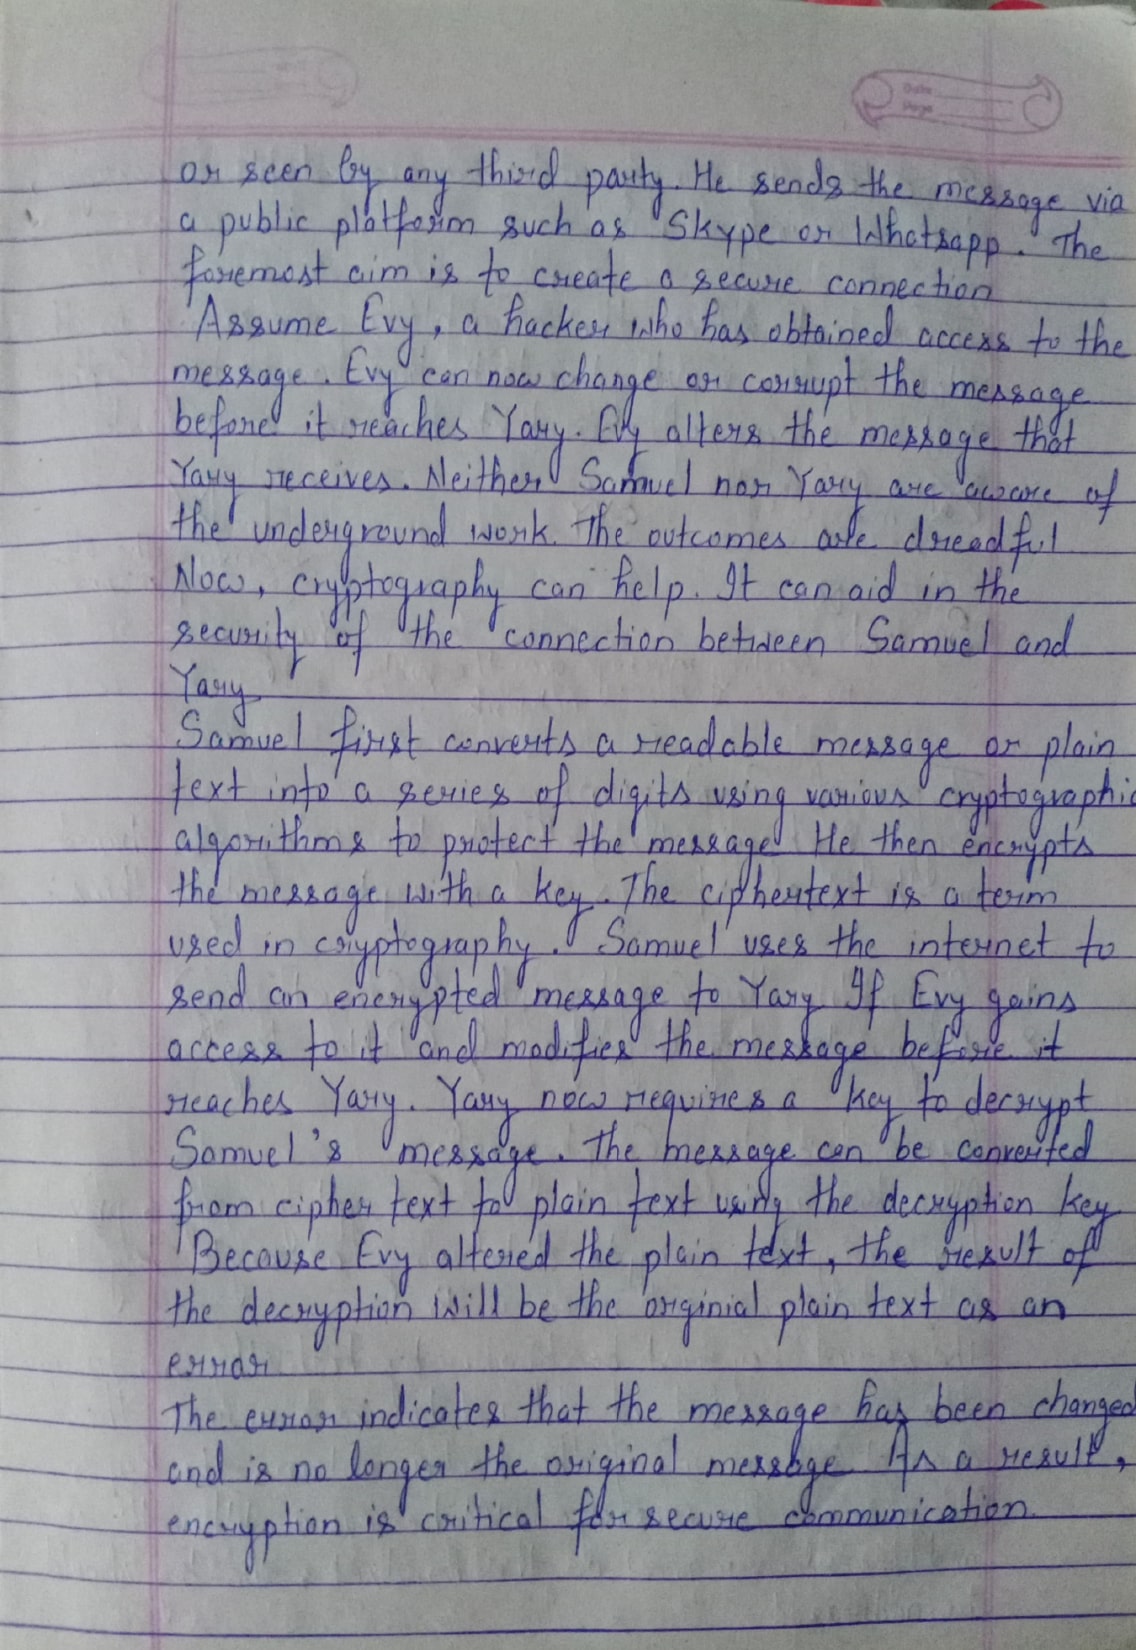 or seen by any third party. He sends the message via
a public platform such as Skype or Whatsapp. The
foremost aim is to create a secure connection
Assume Evy, a hacker who has obtained access to the
message. Evy can now change or corrupt the message
before it reaches Yary. Evy alters the message that
Yary receives. Neither Samuel nor Yary are aware of
the underground work. The outcomes are dreadful
Now, cryptography can help. It can aid in the
security of the connection between Samuel and
Yary
Samuel first converts a readable message or plain
text into a series of digits using various cryptographic
algorithms to protect the message He then encrypts
the message with a key. The ciphertext is a term
used in cryptography. Samuel uses the internet to
send an encrypted message to Yary If Evy gains
access to it and modifies the message before it
reaches Yary. Yary now requires a key to decrypt
Samuel's message. The message can be converted
from cipher text to plain text using the decryption key
Because Evy altered the plain text, the result of
the decryption will be the orginial plain text as an
error
The error indicates that the message has been changed
and is no longer the original message As a result,
encryption is critical for secure communication.